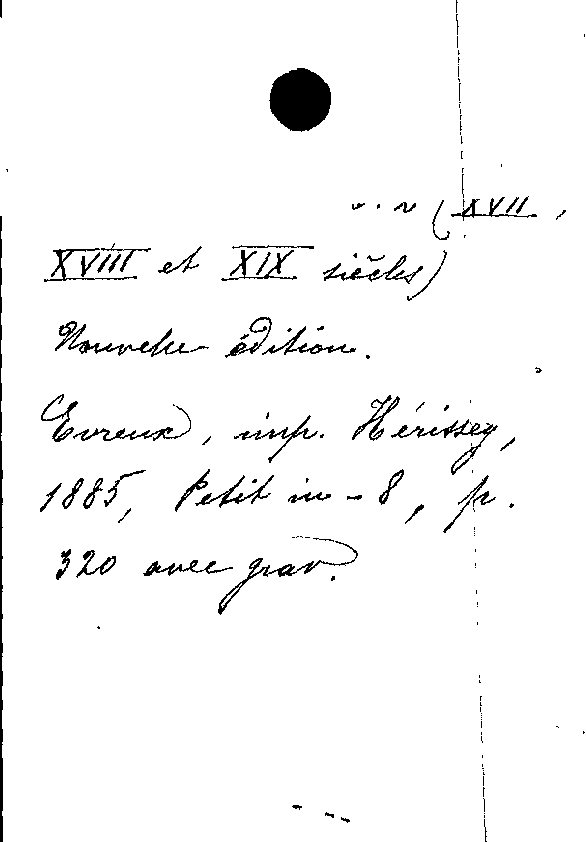 (XVII,
XVIII et XIX siècles)
Nouvelle édition.
Evreux, imp. Hérissey,
1885, Petit in-8, p.
320 avec grav.